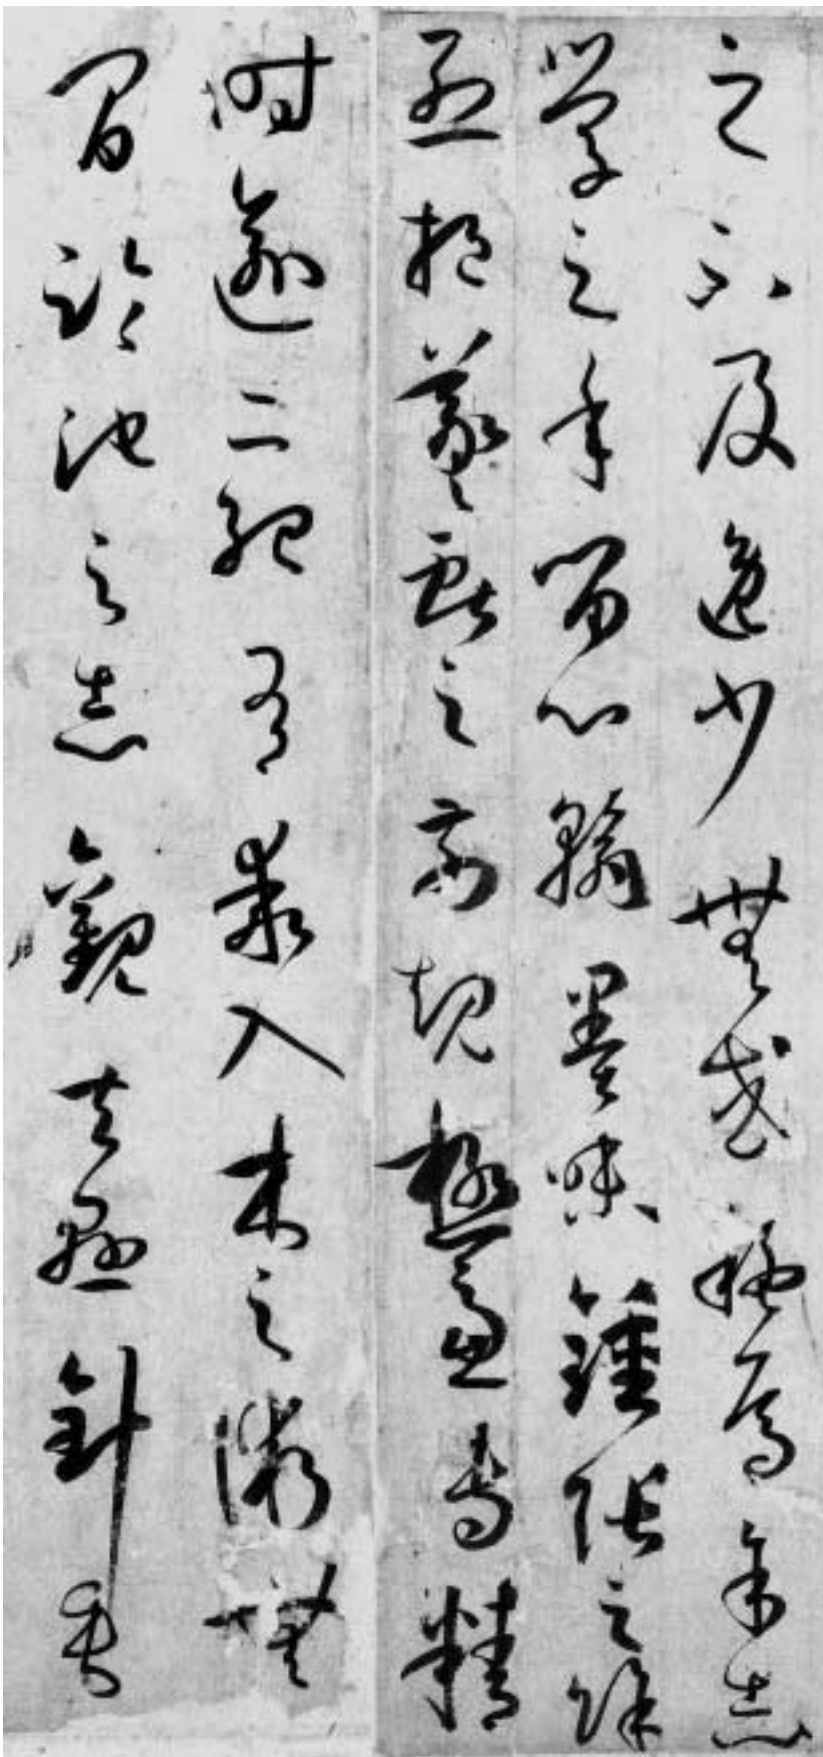 之不及逸少無或疑焉余志
學之年留心翰墨味鍾張之餘
烈挹羲獻之前規極慮專精
時逾二紀有乖入木之術無
間臨池之志觀夫懸針垂